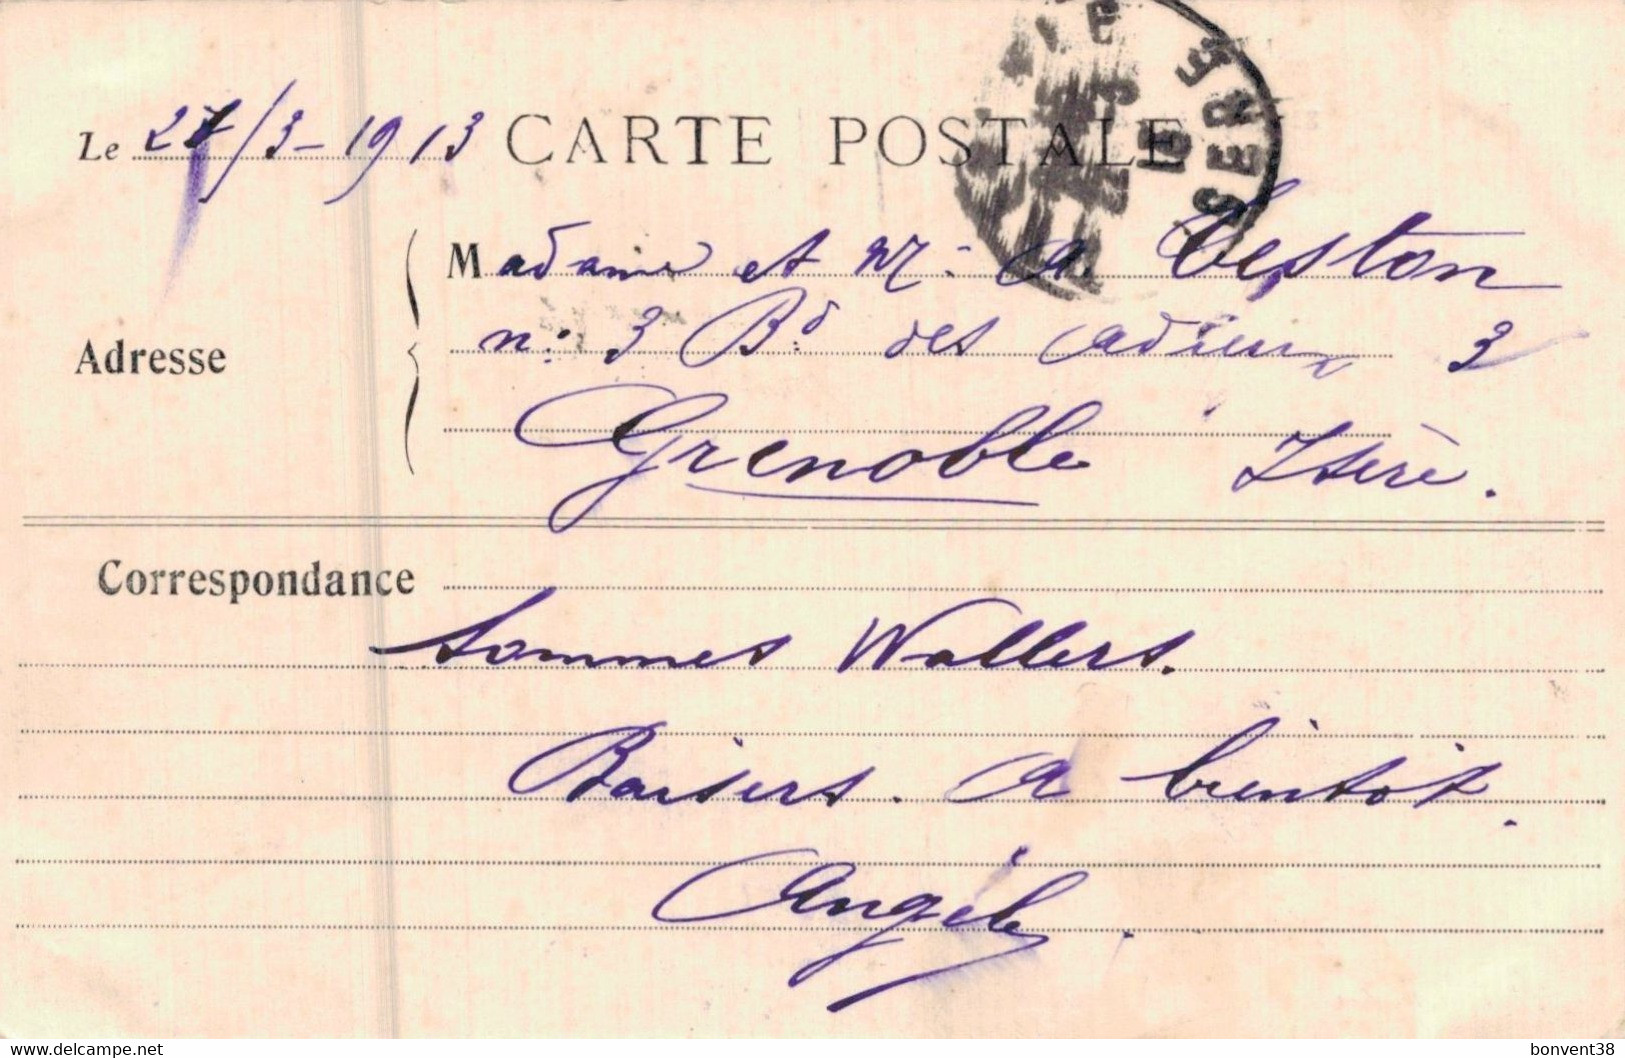 Le 27/3-1913 CARTE POSTALE
Adresse
Madame et Mr: A. Teston
n: 3 Bd des adieux 3
Grenoble Isère.
Correspondance
Sommes Wallers.
Baisers. a bientot.
Angèle.
delcampe.net
bonvent38